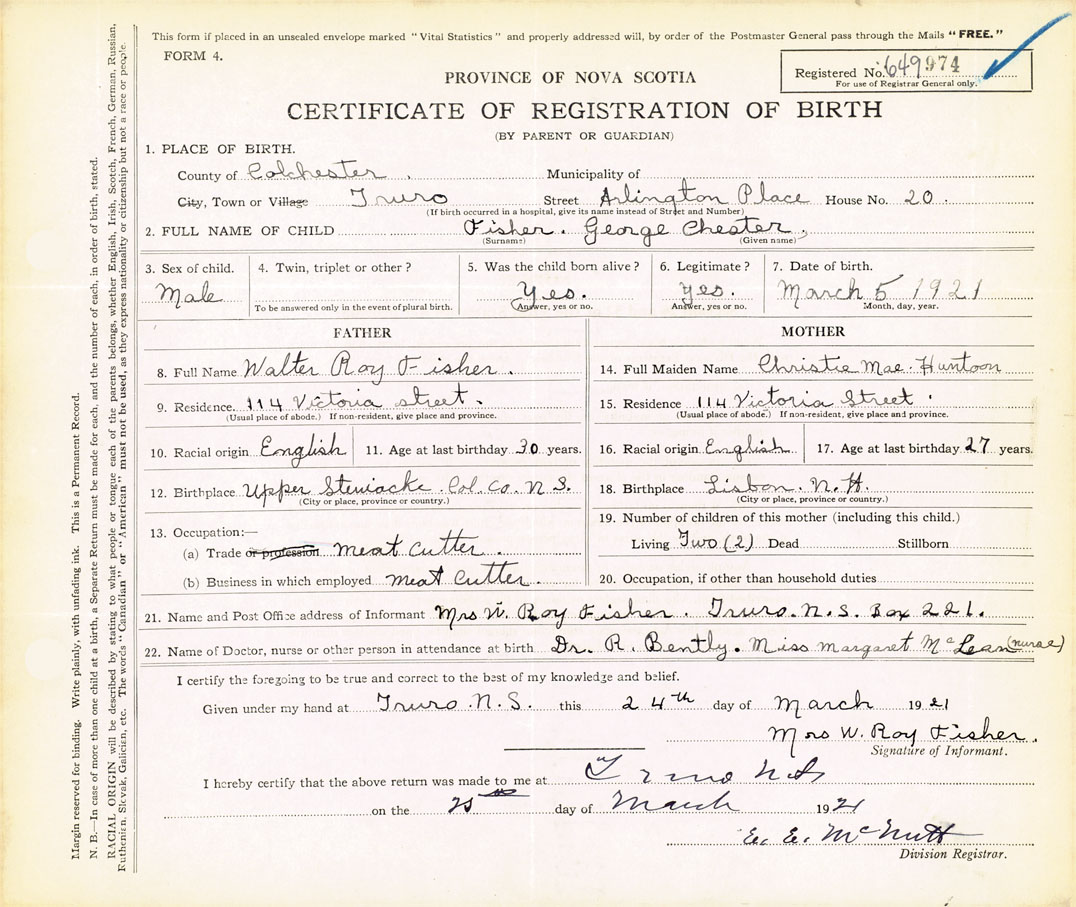 This form if placed in an unsealed envelope marked "Vital Statistics" and properly addressed will, by order of the Postmaster General pass through the Mails "FREE."
FORM 4.
Registered No. 649974
For use of Registrar General only.
PROVINCE OF NOVA SCOTIA
CERTIFICATE OF REGISTRATION OF BIRTH
(BY PARENT OR GUARDIAN)
1. PLACE OF BIRTH.
County of Colchester. Municipality of
City, Town or Village Truro Street Arlington Place House No. 20.
(If birth occurred in a hospital, give its name instead of Street and Number)
2. FULL NAME OF CHILD Fisher. George Chester.
(Surname) (Given name)
3. Sex of child. 4. Twin, triplet or other? 5. Was the child born alive? 6. Legitimate? 7. Date of birth.
Male Yes. yes. March 5 1921
To be answered only in the event of plural birth. Answer, yes or no. Answer, yes or no. Month, day, year.
FATHER
8. Full Name Walter Roy Fisher.
9. Residence 114 Victoria street.
(Usual place of abode.) If non-resident, give place and province.
10. Racial origin English 11. Age at last birthday 30 years.
12. Birthplace Upper Stewiacke. Col. Co. N S.
(City or place, province or country.)
13. Occupation:—
(a) Trade or profession Meat Cutter.
(b) Business in which employed meat Cutter.
MOTHER
14. Full Maiden Name Christie Mae. Huntoon
15. Residence 114 Victoria Street.
(Usual place of abode.) If non-resident, give place and province.
16. Racial origin English 17. Age at last birthday 27 years.
18. Birthplace Lisbon. N. H.
(City or place, province or country.)
19. Number of children of this mother (including this child.)
Living Two (2) Dead Stillborn
20. Occupation, if other than household duties
21. Name and Post Office address of Informant Mrs W. Roy Fisher. Truro. N. S. Box 221.
22. Name of Doctor, nurse or other person in attendance at birth Dr. R. Bently. Miss Margaret McLean (nurse)
I certify the foregoing to be true and correct to the best of my knowledge and belief.
Given under my hand at Truro. N. S. this 24th day of March 1921
Mrs W. Roy Fisher.
Signature of Informant.
I hereby certify that the above return was made to me at Truro N S
on the 25 day of March 1921
E. E. McNutt
Division Registrar.
Margin reserved for binding. Write plainly, with unfading ink. This is a Permanent Record.
N. B.—In case of more than one child at a birth, a Separate Return must be made for each, and the number of each, in order of birth, stated.
RACIAL ORIGIN will be described by stating to what people or tongue each of the parents belongs, whether English, Irish, Scotch, French, German, Russian,
Ruthenian, Slovak, Galician, etc. The words "Canadian" or "American" must not be used, as they express nationality or citizenship but not a race or people.